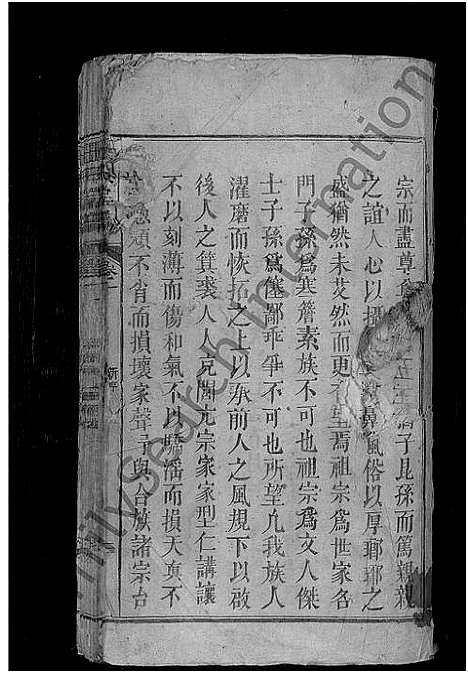 宗而盡尊子昆孫而篤親親
之誼人心以風俗以厚瑯琊之
盛猶然未艾然而更不望焉祖宗為世家名
門子孫為寒簷素族不可也祖宗為文人傑
士子孫為僿鄙乖爭不可也所望凡我族人
濯磨而恢拓之上以承前人之風規下以啟
後人之箕裘人人克閑亢宗家家型仁講讓
不以刻薄而傷和氣不以驕淫而損天真不
頑不肖而損壞家聲予與合族諸宗台
FamilySearch International